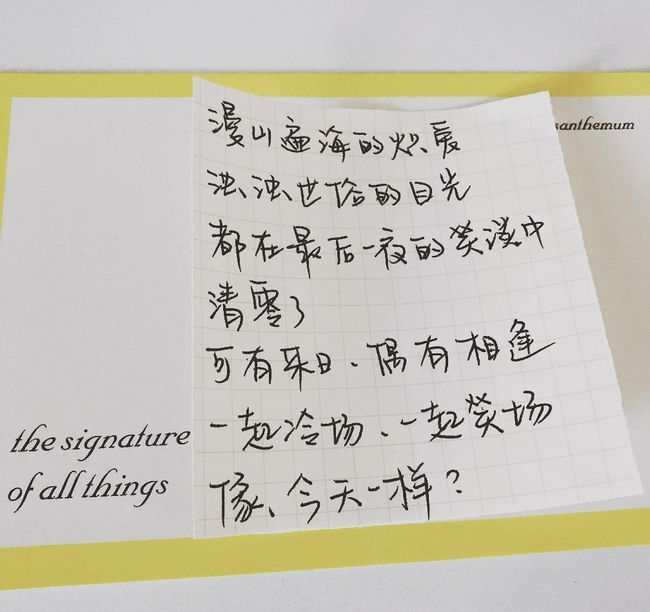 漫山遍海的炽爱
浊浊世俗的目光
都在最后一夜的笑谈中
清零了
可有来日、偶有相逢
一起冷场、一起笑场
像、今天一样?
the signature
of all things